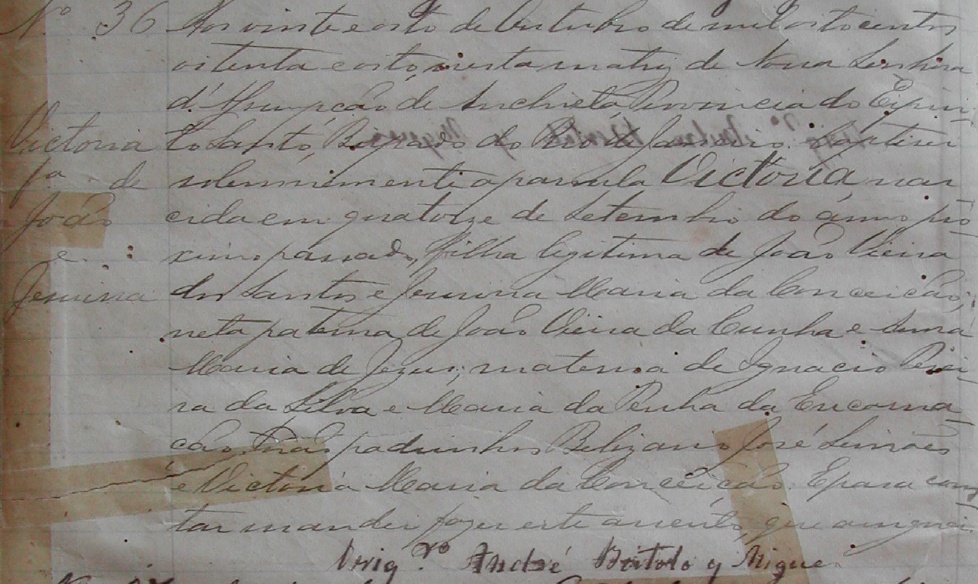 Nº 36 Aos vinte e oito de Outubro de mil oito centos
oitenta e oito, nesta matriz de Nossa Senhora
d'Assumpção de Anchieta, Provincia do Espiri
Victoria to Santo, Bispado do Rio de Janeiro, baptizei
fª de solemnimente a parvula Victoria nas
João cida em quatorze de Setembro do anno pro
e ximo passado, filha legitima de João Vieira
Jesuina dos Santos e Jesuina Maria da Conceição,
neta paterna de João Vieira da Cunha e Anna
Maria de Jezus; materna de Ignacio Perei
ra da Silva e Maria da Penha da Encarna
ção. Padrinhos Belizario José Simões
e Victoria Maria da Conceição. E para cons
tar mandei fazer este assento, que assignei
Vrig.º André Bartolo y